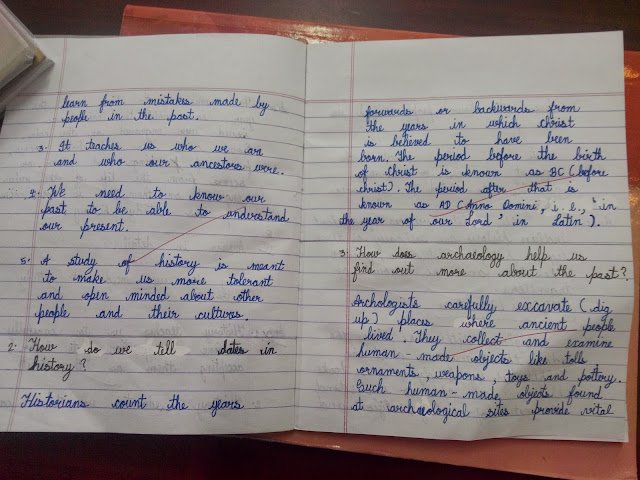 learn from mistakes made by
people in the past.
3. It teaches us who we are
and who our ancestors were.
4. We need to know our
past to be able to understand
our present.
5. A study of history is meant
to make us more tolerant
and open minded about other
people and their cultures.
2. How do we tell dates in
history?
Historians count the years
forwards or backwards from
the years in which christ
is believed to have been
born. The period before the birth
of christ is known as BC (before
christ). The period after that is
known as AD (Anno Domini, i.e., 'in
the year of our Lord' in Latin).
3. How does archaeology help us
find out more about the past?
Archologists carefully excavate (dig
up) places where ancient people
lived. They collect and examine
human-made objects like tolls
ornaments, weapons, toys and pottery.
Such human-made objects found
at archaeological sites provide vital